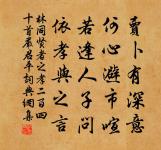 賣卜有深意
何心避市喧
若逢人子問
依孝與之言
林同賢者之孝二百四
十首嚴君平詞典網集